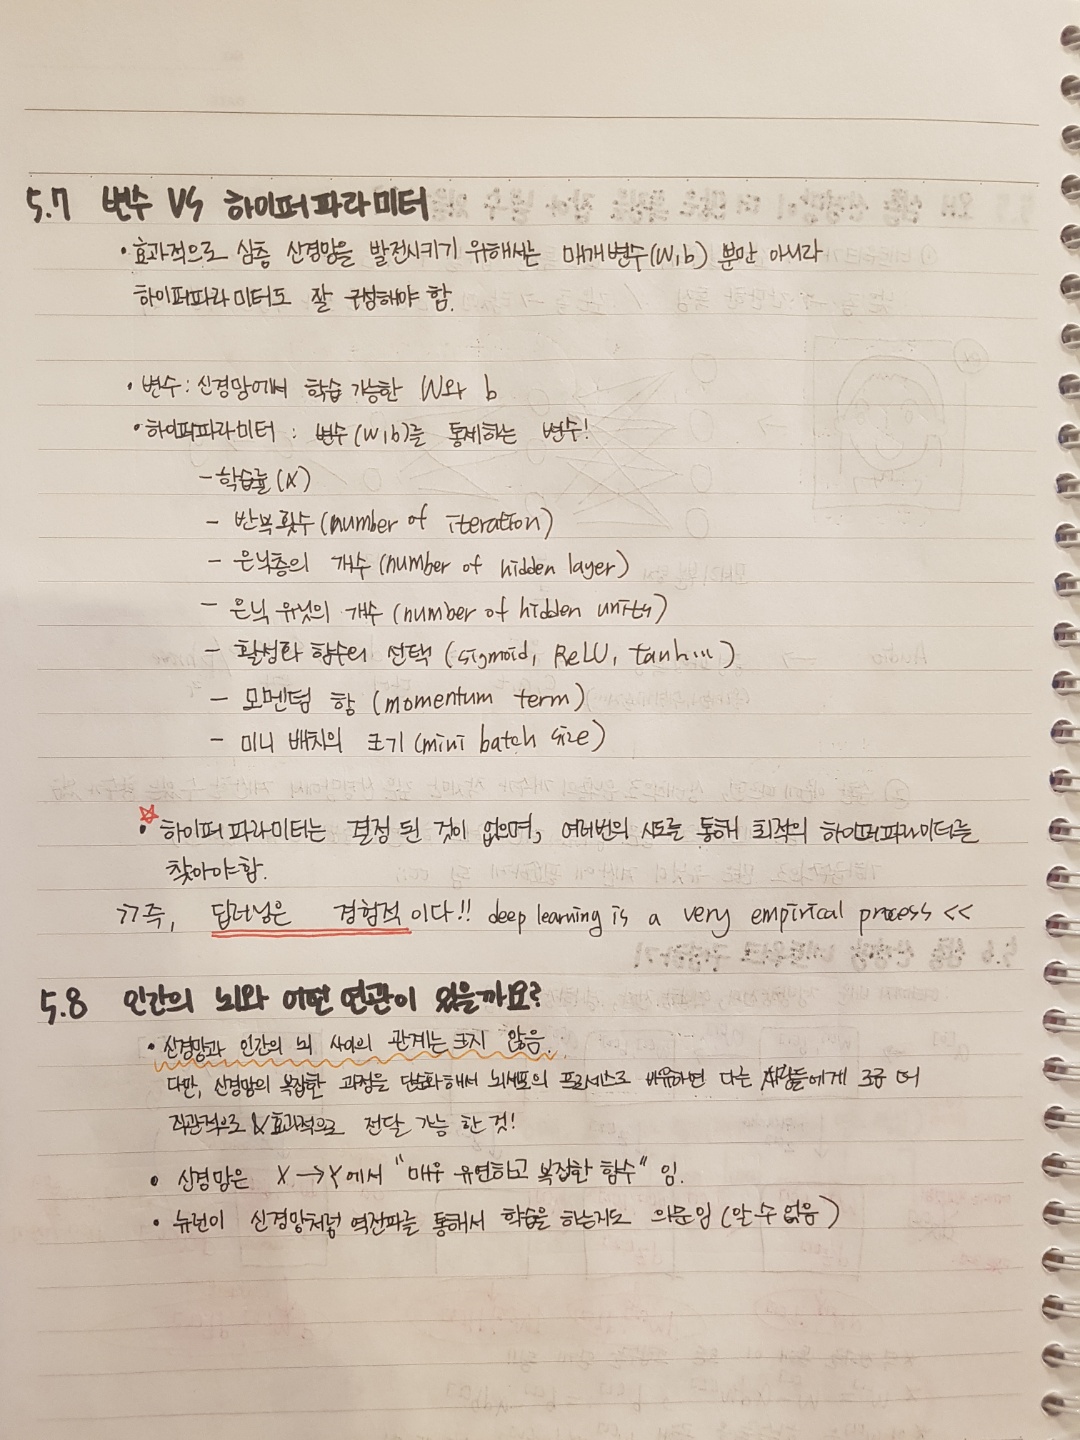 5.7 변수 VS 하이퍼파라미터
• 효과적으로 심층 신경망을 발전시키기 위해서는 매개변수(W,b) 뿐만 아니라
하이퍼파라미터도 잘 구성해야 함.
• 변수 : 신경망에서 학습 가능한 W와 b
• 하이퍼파라미터 : 변수(W,b)를 통제하는 변수!
- 학습률(α)
- 반복횟수(number of iteration)
- 은닉층의 개수(number of hidden layer)
- 은닉 유닛의 개수(number of hidden units)
- 활성화 함수의 선택(sigmoid, ReLU, tanh...)
- 모멘텀 항(momentum term)
- 미니 배치의 크기(mini batch size)
☆
• 하이퍼파라미터는 결정 된 것이 없으며, 여러번의 시도를 통해 최적의 하이퍼파라미터를
찾아야함.
>> 즉, 딥러닝은 경험적 이다!! deep learning is a very empirical process <<
5.8 인간의 뇌와 어떤 연관이 있을까요?
• 신경망과 인간의 뇌 사이의 관계는 크지 않음.
다만, 신경망의 복잡한 과정을 단순화해서 뇌세포의 프로세스로 비유하면 다른 사람들에게 조금 더
직관적으로 & 효과적으로 전달 가능 한 것!
• 신경망은 X → Y에서 "매우 유연하고 복잡한 함수" 임.
• 뉴런이 신경망처럼 역전파를 통해서 학습을 하는지도 의문임(알 수 없음)